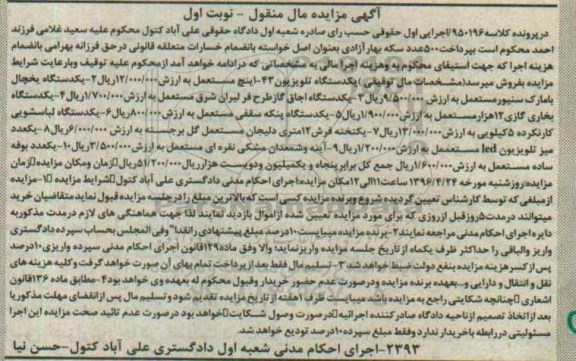 آگهی مزایده مال منقول - نوبت اول
در پرونده کلاسه ۹۵۰۱۹۶/اجرایی اول حقوقی حسب رای صادره شعبه اول دادگاه حقوقی علی آباد کتول محکوم علیه سعید غلامی فرزند
احمد محکوم است بپرداخت ۵۰۰عدد سکه بهار آزادی بعنوان اصل خواسته بانضمام خسارات متعلقه قانونی در حق فرزانه بهرامی بانضمام
هزینه اجرا که جهت استیفای محکوم به و هزینه اجرا مالی به مشخصاتی که در ادامه خواهد آمد از محکوم علیه توقیف وبارعایت شرایط
مزایده بفروش میرسد(مشخصات مال توقیفی )یکدستگاه تلویزیون ۴۳-اینچ مستعمل به ارزش ۱۲/۰۰۰/۰۰۰ریال ۲-یکدستگاه یخچال
بامارک سنیور مستعمل به ارزش ۹/۵۰۰/۰۰۰ریال ۳-یکدستگاه اجاق گاز طرح فر لیران شرق مستعمل به ارزش ۱/۷۰۰/۰۰۰ریال ۴-یکدستگاه
بخاری گازی ۱۲هزار مستعمل به ارزش ۱/۹۰۰/۰۰۰ریال ۵-یکدستگاه پنکه سقفی مستعمل به ارزش ۸۰۰/۰۰۰ریال ۶-یکدستگاه لباسشویی
کارنکرده ۵کیلویی به ارزش ۱۳/۰۰۰/۰۰۰ریال ۷-یکتخته فرش ۱۲متری دلیجان مستعمل گل برجسته به ارزش ۶/۰۰۰/۰۰۰ریال ۸-یکعدد
میز تلویزیون led مستعمل به ارزش ۱/۲۰۰/۰۰۰ریال ۹-آینه وشمعدان مشکی نقره ای مستعمل به ارزش ۳/۵۰۰/۰۰۰ریال ۱۰-یکعدد بوفه
ساده مستعمل به ارزش ۱/۶۰۰/۰۰۰ریال جمع کل برابر پنجاه و یکمیلیون ودویست هزار ریال ۵۱/۲۰۰/۰۰۰ریال زمان ومکان مزایده زمان
مزایده:روزشنبه مورخه ۱۳۹۶/۴/۲۴ ساعت ۱۱الی ۱۲مکان مزایده:اجرای احکام مدنی دادگستری علی آباد کتول شرایط مزایده ۱-مزایده
از مبلغی که توسط کارشناس تعیین گردیده شروع وبرنده مزایده کسی است که بالاترین مبلغ را در جلسه مزایده قبول نماید متقاضیان خرید
میتوانند در مدت ۵روز قبل از روزی که برای مورد مزایده تعیین شده از اموال بازدید نمایند لذا جهت هماهنگی های لازم در مدت مذکوربه
دایره اجرای احکام مدنی مراجعه نمایند ۲-برنده مزایده میبایست ۱۰درصد مبلغ پیشنهادی رانقدا" وفی المجلس بحساب سپرده دادگستری
واریز والباقی را حداکثر ظرف یکماه از تاریخ جلسه مزایده واریزنماید والا وفق ماده ۱۲۹قانون اجرای احکام مدنی سپرده واریزی ۱۰درصد
پس از کسر هزینه مزایده بنفع دولت ضبط خواهد شد ۳-تسلیم مال فقط بعد از پرداخت تمام بهای آن صورت خواهد گرفت وکلیه هزینه های
نقل و انتقال و دارایی و...بعهده برنده مزایده ودر صورت عدم حضور خریدار وقبول محکوم له بعهده وی خواهد بود ۴-مطابق ماده ۱۳۶قانون
اشعاری چنانچه شکایتی راجع به مزایده باشد میبایست ظرف ۱هفته از تاریخ مزایده تقدیم شود وتسلیم مال پس از انقضای مهلت مذکور یا
بعد از اتخاذ تصمیم از ناحیه دادگاه صادر کننده اجرائیه در صورت وصول شکایت خواهد بود در صورت عدم تائید صحت مزایده این اجرا
مسئولیتی در رابطه با خریدار ندارد وفقط مبلغ سپرده ۱۰درصد تودیع خواهد شد.
۲۳۹۳-اجرای احکام مدنی شعبه اول دادگستری علی آباد کتول-حسن نیا